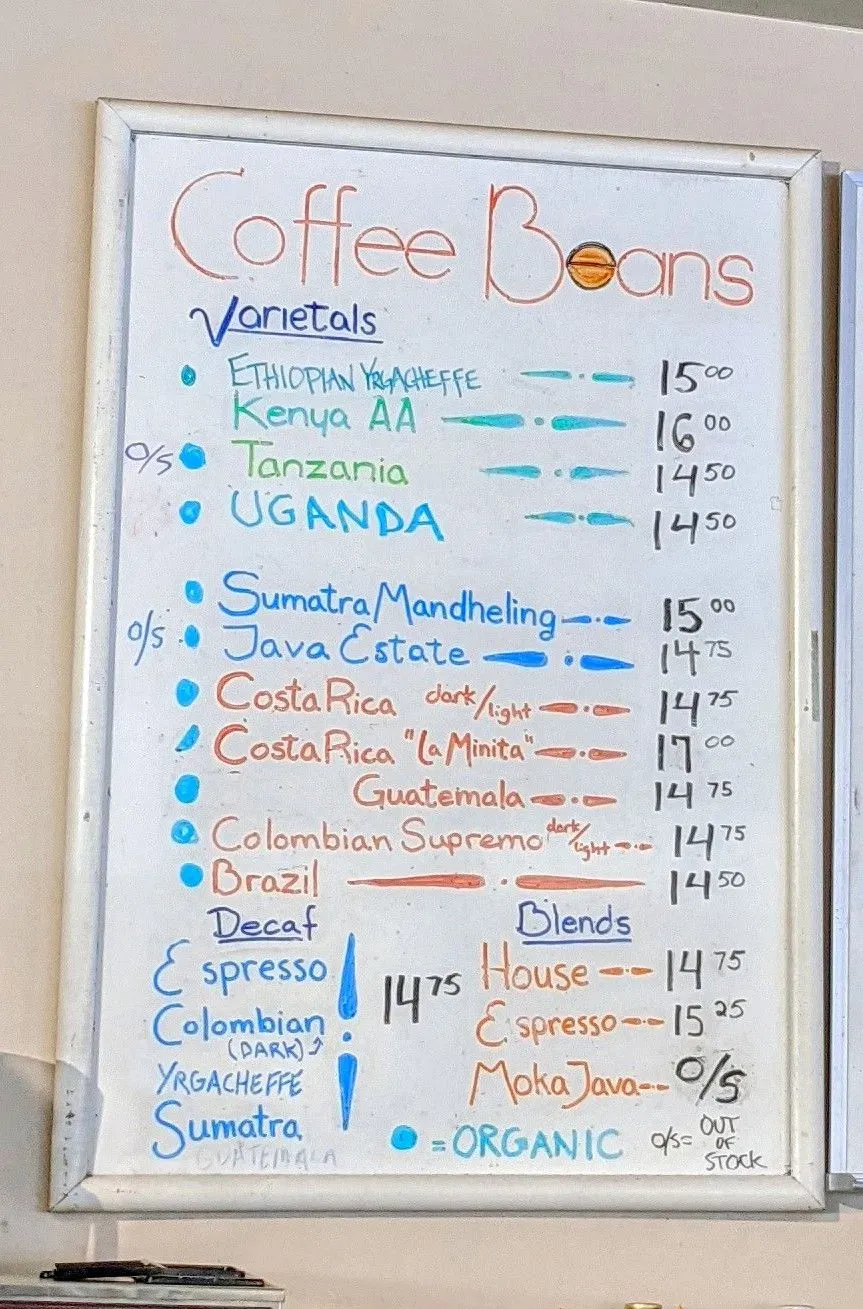 Coffee Beans
Varietals
ETHIOPIAN YRGACHEFFE 15 00
Kenya AA 16 00
o/s Tanzania 14 50
UGANDA 14 50
Sumatra Mandheling 15 00
o/s Java Estate 14 75
Costa Rica dark/light 14 75
Costa Rica "La Minita" 17 00
Guatemala 14 75
Colombian Supremo dark/light 14 75
Brazil 14 50
Decaf
Espresso
Colombian
(DARK)
YRGACHEFFE
Sumatra
GUATEMALA
14 75
Blends
House 14 75
Espresso 15 25
Moka Java O/S
= ORGANIC
o/s= OUT
OF
STOCK